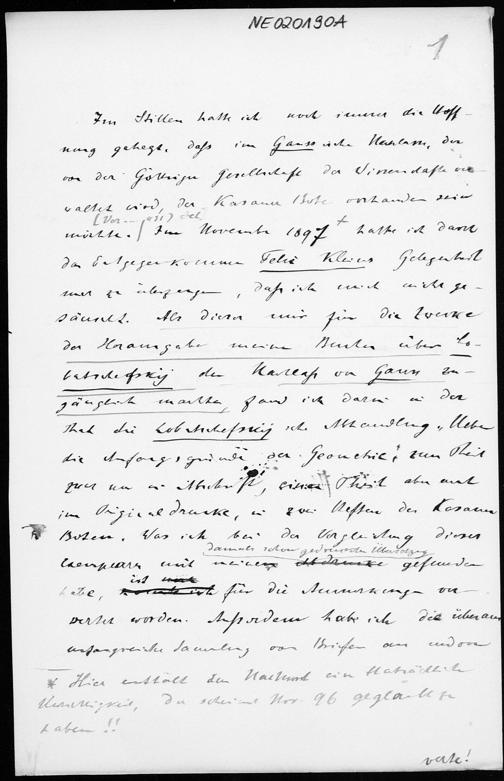 NE020190A
1
Im Stillen hatte ich noch immer die Hoff-
nung gehegt, daß im Gaussische Nachlass, der
von der Göttinger Gesellschaft der Wissenschafte ver-
waltet wird, der Kasaner Bote vorhanden sein
möchte. Im November 1897 + hatte ich durch
das Entgegenkommen Felix Kleins Gelegenheit
mich zu überzeugen, daß ich mich nicht ge-
täuscht. Als dieser mir für die Zwecke
der Herausgabe meines Buches über Lo-
batschefskij den Nachlaß von Gauss zu-
gänglich machte, fand ich darin in der
That die Lobatschefskij sche Abhandlung „Ueber
die Anfangsgründe der Geometrie“, zum Theil
zwar nur in Abschrift, einen Theil aber auch
im Originaldrucke, in zwei Heften des Kasaner
Boten. Was ich bei der Vergleichung dieser
damals schon gedruckten Übersetzung
Exemplare mit meiner gefunden
habe, ist für die Anmerkungen ver-
wertet worden. Außerdem habe ich die überaus
umfangreiche Sammlung von Briefen an und von
* Hier enthält das Nachwort eine thatsächliche
Unrichtigkeit, da scheint Nov. 96 geglaubt zu
haben!!
verte!